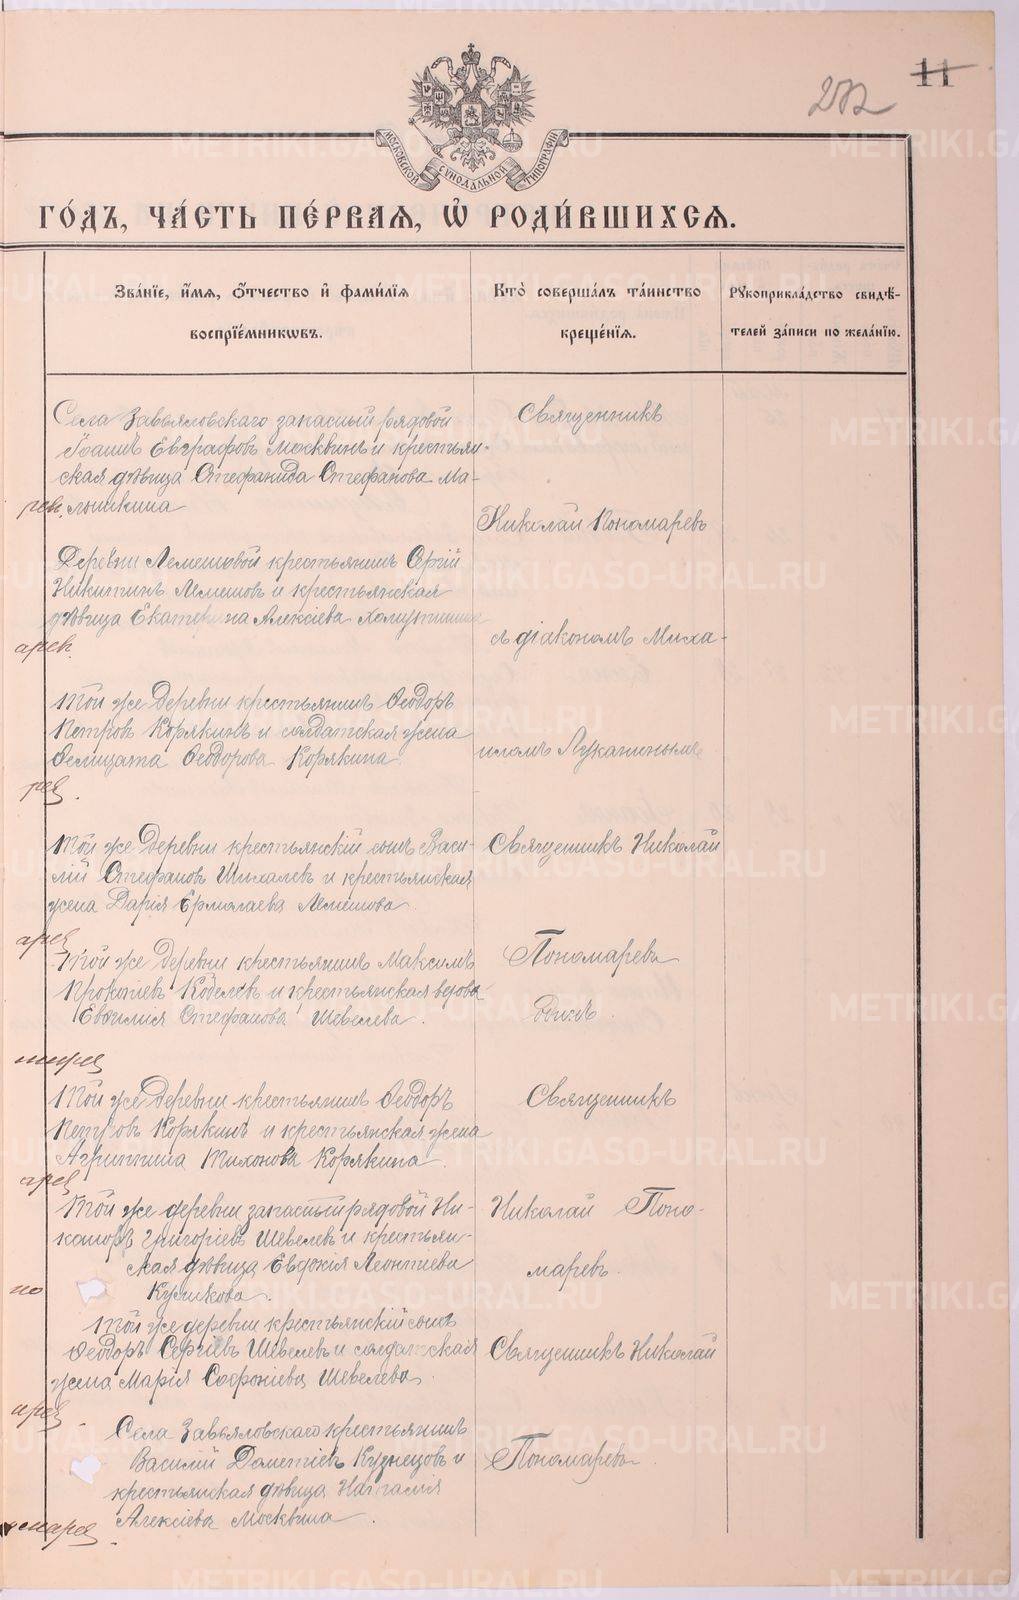 11
272
МОСКОВСКОЙ СѴНОДАЛЬНОЙ ТИПОГРАФІИ
ГО́ДЪ, ЧА́СТЬ ПЕ́РВАѦ, Ѡ҆ РОДИ́ВШИХСѦ.
Зва́нїе, и҆́мѧ, ѻ҆́тчество и҆ фами́лїѧ
воспрїе́мникѡвъ.
Кто̀ соверша́лъ та́инство
креще́нїѧ.
Рꙋкоприкла́дство свидѣ́-
телей за́писи по жела́нїю.
Села Завьяловскаго запасный рядовой
Іоаннъ Евграфовъ Москвинъ и крестьян-
ская дѣвица Стефанида Стефанова Ма-
лышкина
Священникъ
Николай Пономаревъ
Деревни Лемешовой крестьянинъ Сергій
Никитинъ Лемешовъ и крестьянская
дѣвица Екатерина Алексіева
съ діакономъ Миха-
Той же деревни крестьянинъ Ѳеодоръ
Петровъ Корякинъ и солдатская жена
Ѳелицата Ѳеодорова Корякина
иломъ Луканинымъ
Той же деревни крестьянскій сынъ Васи-
лій Стефановъ Шихалевъ и крестьянская
жена Дарія Ермолаева Лемешова
Священникъ Николай
Той же деревни крестьянинъ Максимъ
Прокопіевъ Кобелевъ и крестьянская вдова
Евѳимія Стефанова Шевелева.
Пономаревъ
одинъ.
Той же деревни крестьянинъ Ѳеодоръ
Петровъ Корякинъ и крестьянская жена
Агриппина Тихонова Корякина
Священникъ
Той же деревни запасный рядовой Ни-
каноръ Григоріевъ Шевелевъ и крестьян-
ская дѣвица Евдокія Леонтіева
Куликова.
Николай Поно-
маревъ.
Той же деревни крестьянскій сынъ
Ѳеодоръ Сергіевъ Шевелевъ и солдатская
жена Марія Софоніева Шевелева.
Священникъ Николай
Села Завьяловскаго крестьянинъ
Василій Дометіевъ Кузнецовъ и
крестьянская дѣвица Наталія
Алексіева Москвина.
Пономаревъ.
METRIKI.GASO-URAL.RU